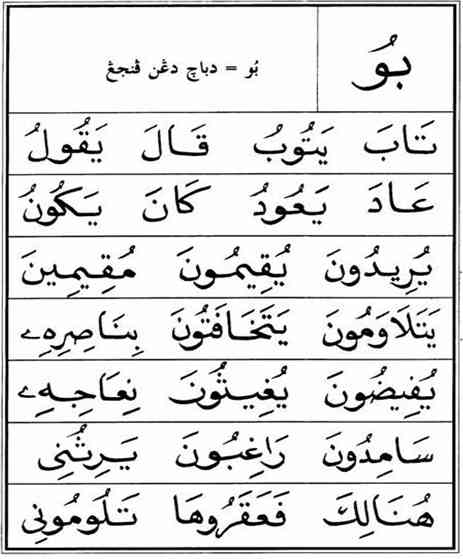 بُو
بُو = دباچ دڠن ڤنجڠ
تَابَ يَتُوبُ قَالَ يَقُولُ
عَادَ يَعُودُ كَانَ يَكُونُ
يُرِيدُونَ يُقِيمُونَ مُقِيمِينَ
يَتَلَاوَمُونَ يَتَخَافَتُونَ بِنَاصِرِهِے
يُفِيضُونَ يُغِيثُونَ نِعَاجِهِے
سَامِدُونَ رَاغِبُونَ يَرِثُنِى
هُنَالِكَ فَعَقَرُوهَا تَلُومُونِى